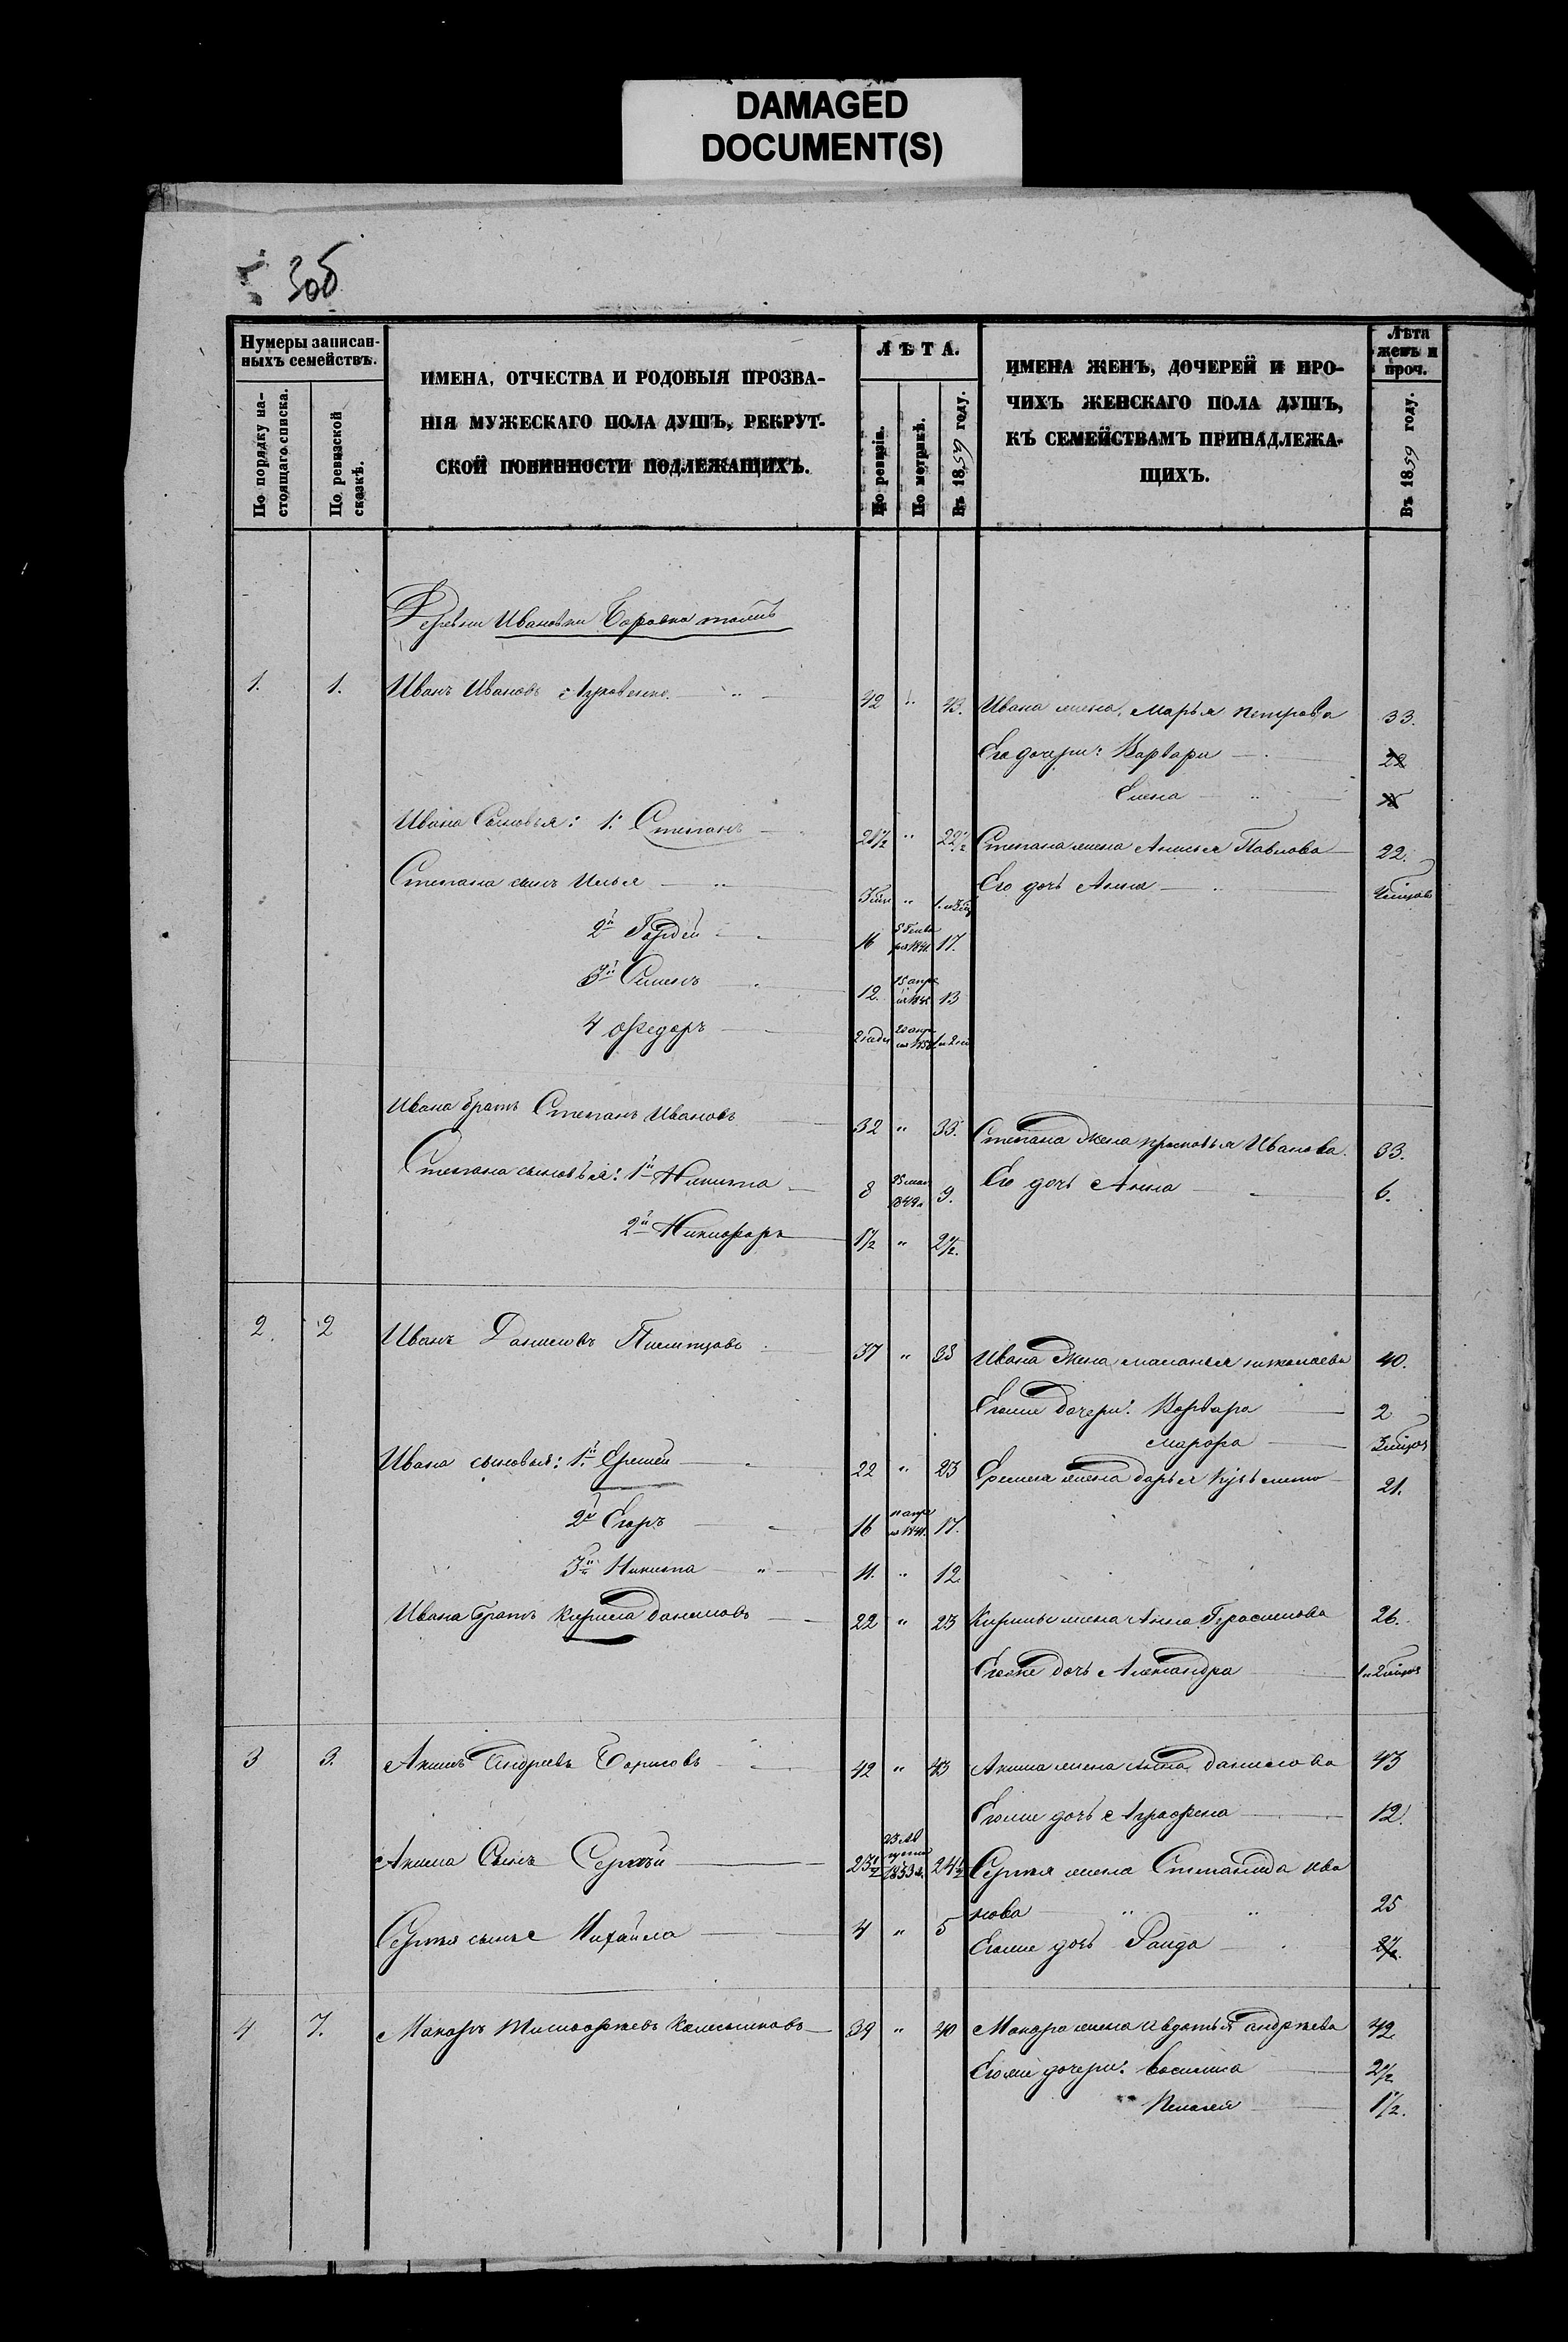 DAMAGED
DOCUMENT(S)
30б
Нумеры записан-
ныхъ семействъ.
По порядку на-
стоящаго списка.
По ревизской
сказкѣ.
ИМЕНА, ОТЧЕСТВА И РОДОВЫЯ ПРОЗВА-
НІЯ МУЖЕСКАГО ПОЛА ДУШЪ, РЕКРУТ-
СКОЙ ПОВИННОСТИ ПОДЛЕЖАЩИХЪ.
ЛѢТА.
По ревизіи.
По метрикѣ.
Въ 1859 году.
ИМЕНА ЖЕНЪ, ДОЧЕРЕЙ И ПРО-
ЧИХЪ ЖЕНСКАГО ПОЛА ДУШЪ,
КЪ СЕМЕЙСТВАМЪ ПРИНАДЛЕЖА-
ЩИХЪ.
Лѣта
женъ и
проч.
Въ 1859 году.
Деревни Ивановки
1. 1. Иванъ Ивановъ 42 " 43. Ивана жена, Марья Петрова 33.
Его дочери: Варвара 22
Елена
Ивана Сыновья: 1. Степанъ 21½ " 22½ Степана жена Анисья Павлова 22.
Степана сынъ Илья " Его дочь Анна
2й Гордей 16 17.
3й Семенъ 12. 13
4 Ѳедоръ
Ивана братъ Степанъ Ивановъ 32 " 33. Степана жена Прасковья Иванова 33.
Степана сыновья: 1й Никита 8 25 мая 1849 9. Его дочь Анна 6.
2й Никифоръ 1½ " 2½.
2. 2 Иванъ Даниловъ 37 " 38 Ивана жена Маланья Николаева 40.
Егоже дочери: Варвара 2
Марфа
Ивана сыновья: 1й Еремей 22 " 23 Еремея жена Дарья 21.
2й Егоръ 16 17.
3й Никита " 11. " 12
Ивана братъ Кирила Даниловъ 22 " 23 Кирилы жена Анна Герасимова 26.
Егоже дочь Александра
3 3. Акимъ Андреевъ Борисовъ 42 " 43 Акима жена Анна Данилова 43
Егоже дочь Аграфена 12.
Акима Сынъ Сергѣй 23½ 24½ Сергѣя жена Степанида Ива
нова " " 25
Сергѣя сынъ Михайла 4 " 5 Егоже дочь Раида 2½.
4 7. Макаръ Тимофѣевъ Колесниковъ 39 " 40 Макара жена Авдотья Андрѣева 42
Егоже дочери: Василиса 2½
Пелагея 1½.